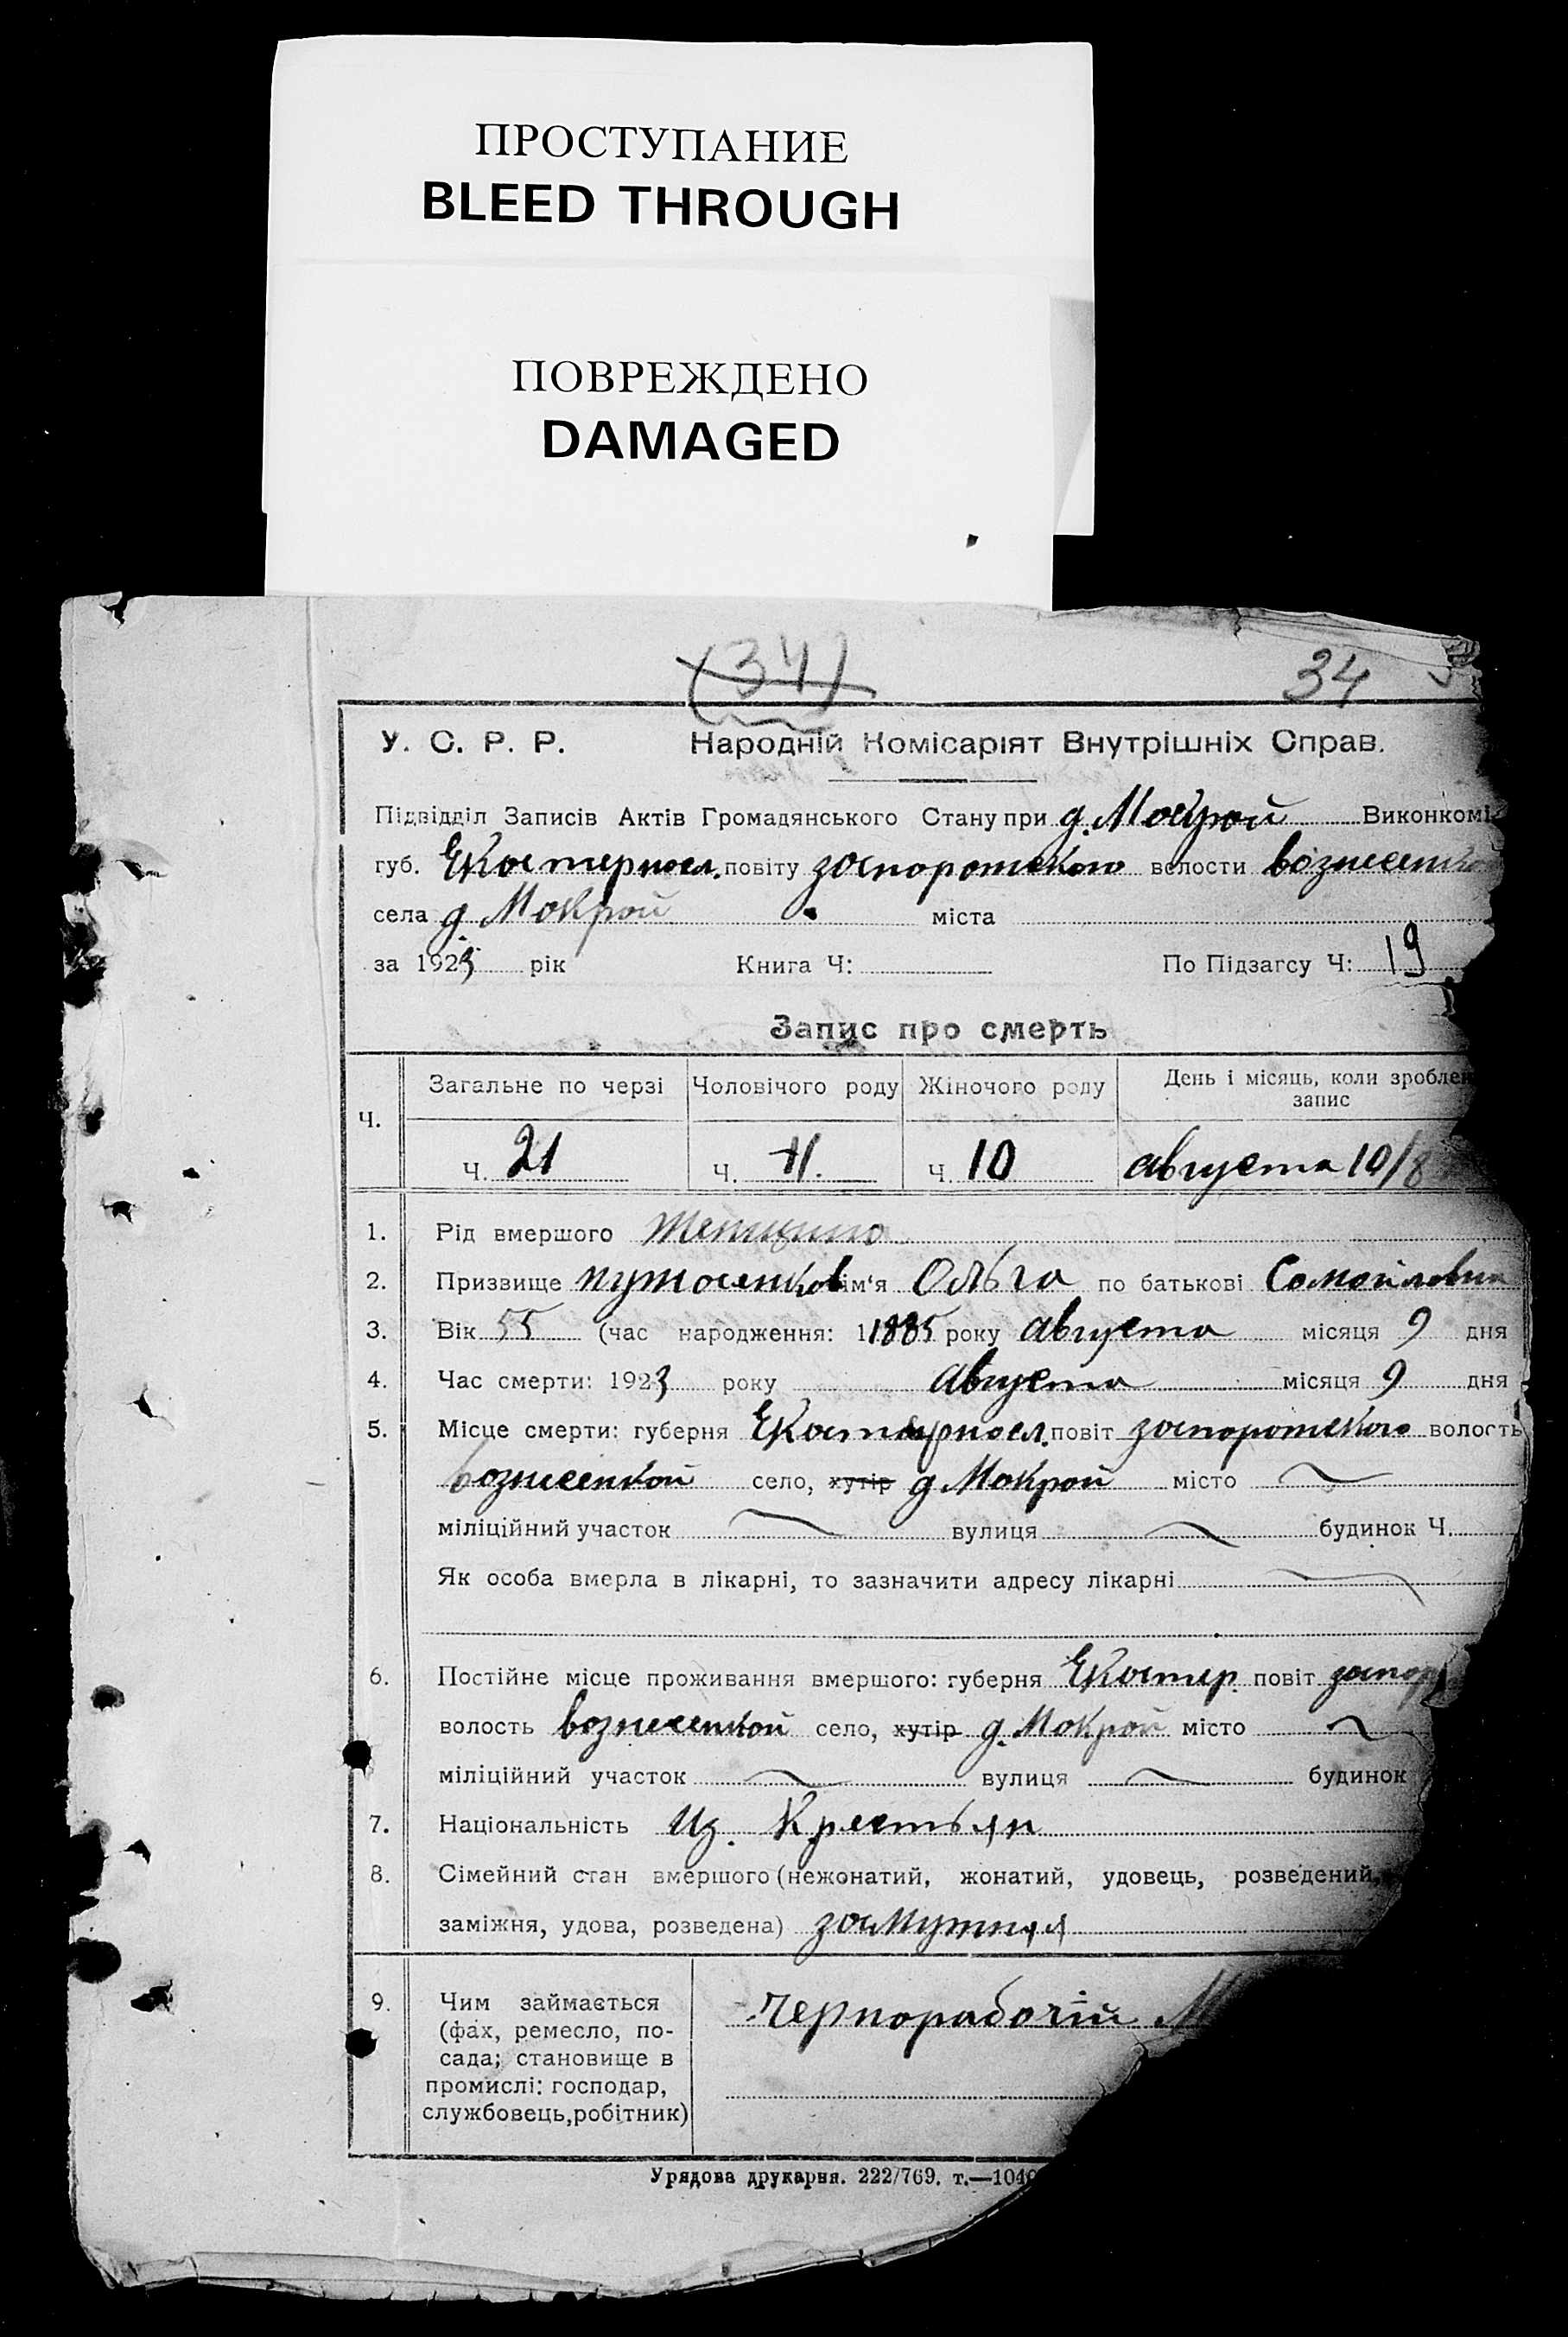 ПРОСТУПАНИЕ
BLEED THROUGH
ПОВРЕЖДЕНО
DAMAGED
(34) 34
У. С. Р. Р. Народній Комісаріят Внутрішніх Справ.
Підвідділ Записів Актів Громадянського Стану при д. Мокрой Виконкомі
губ. Екатериносл. повіту запорожского волости вознесенско
села д. Мокрой міста
за 1923 рік Книга Ч: По Підзагсу Ч: 19
Запис про смерть
Ч. Загальне по черзі Чоловічого роду Жіночого роду День і місяць, коли зроблен
запис
Ч. 21 Ч. 11. Ч. 10 августа 10/8
1. Рід вмершого женщина
2. Призвище ім'я Ольга по батькові Самойловна
3. Вік 55 (час народження: 11885 року августа місяця 9 дня
4. Час смерти: 1923 року августа місяця 9 дня
5. Місце смерти: губерня Екатериносл. повіт запорожского волость
вознесенской село, хутір д Мокрой місто
міліційний участок вулиця будинок Ч.
Як особа вмерла в лікарні, то зазначити адресу лікарні
6. Постійне місце проживання вмершого: губерня Екатер. повіт запор
волость вознесенской село, хутір д. Мокрой місто
міліційний участок вулиця будинок
7. Національність Из. Крестьян
8. Сімейний стан вмершого (нежонатий, жонатий, удовець, розведений,
заміжня, удова, розведена) замужняя
9. Чим займається чернорабочій М
(фах, ремесло, по-
сада; становище в
промислі: господар,
службовець, робітник)
Урядова друкарня. 222/769. т.—1040